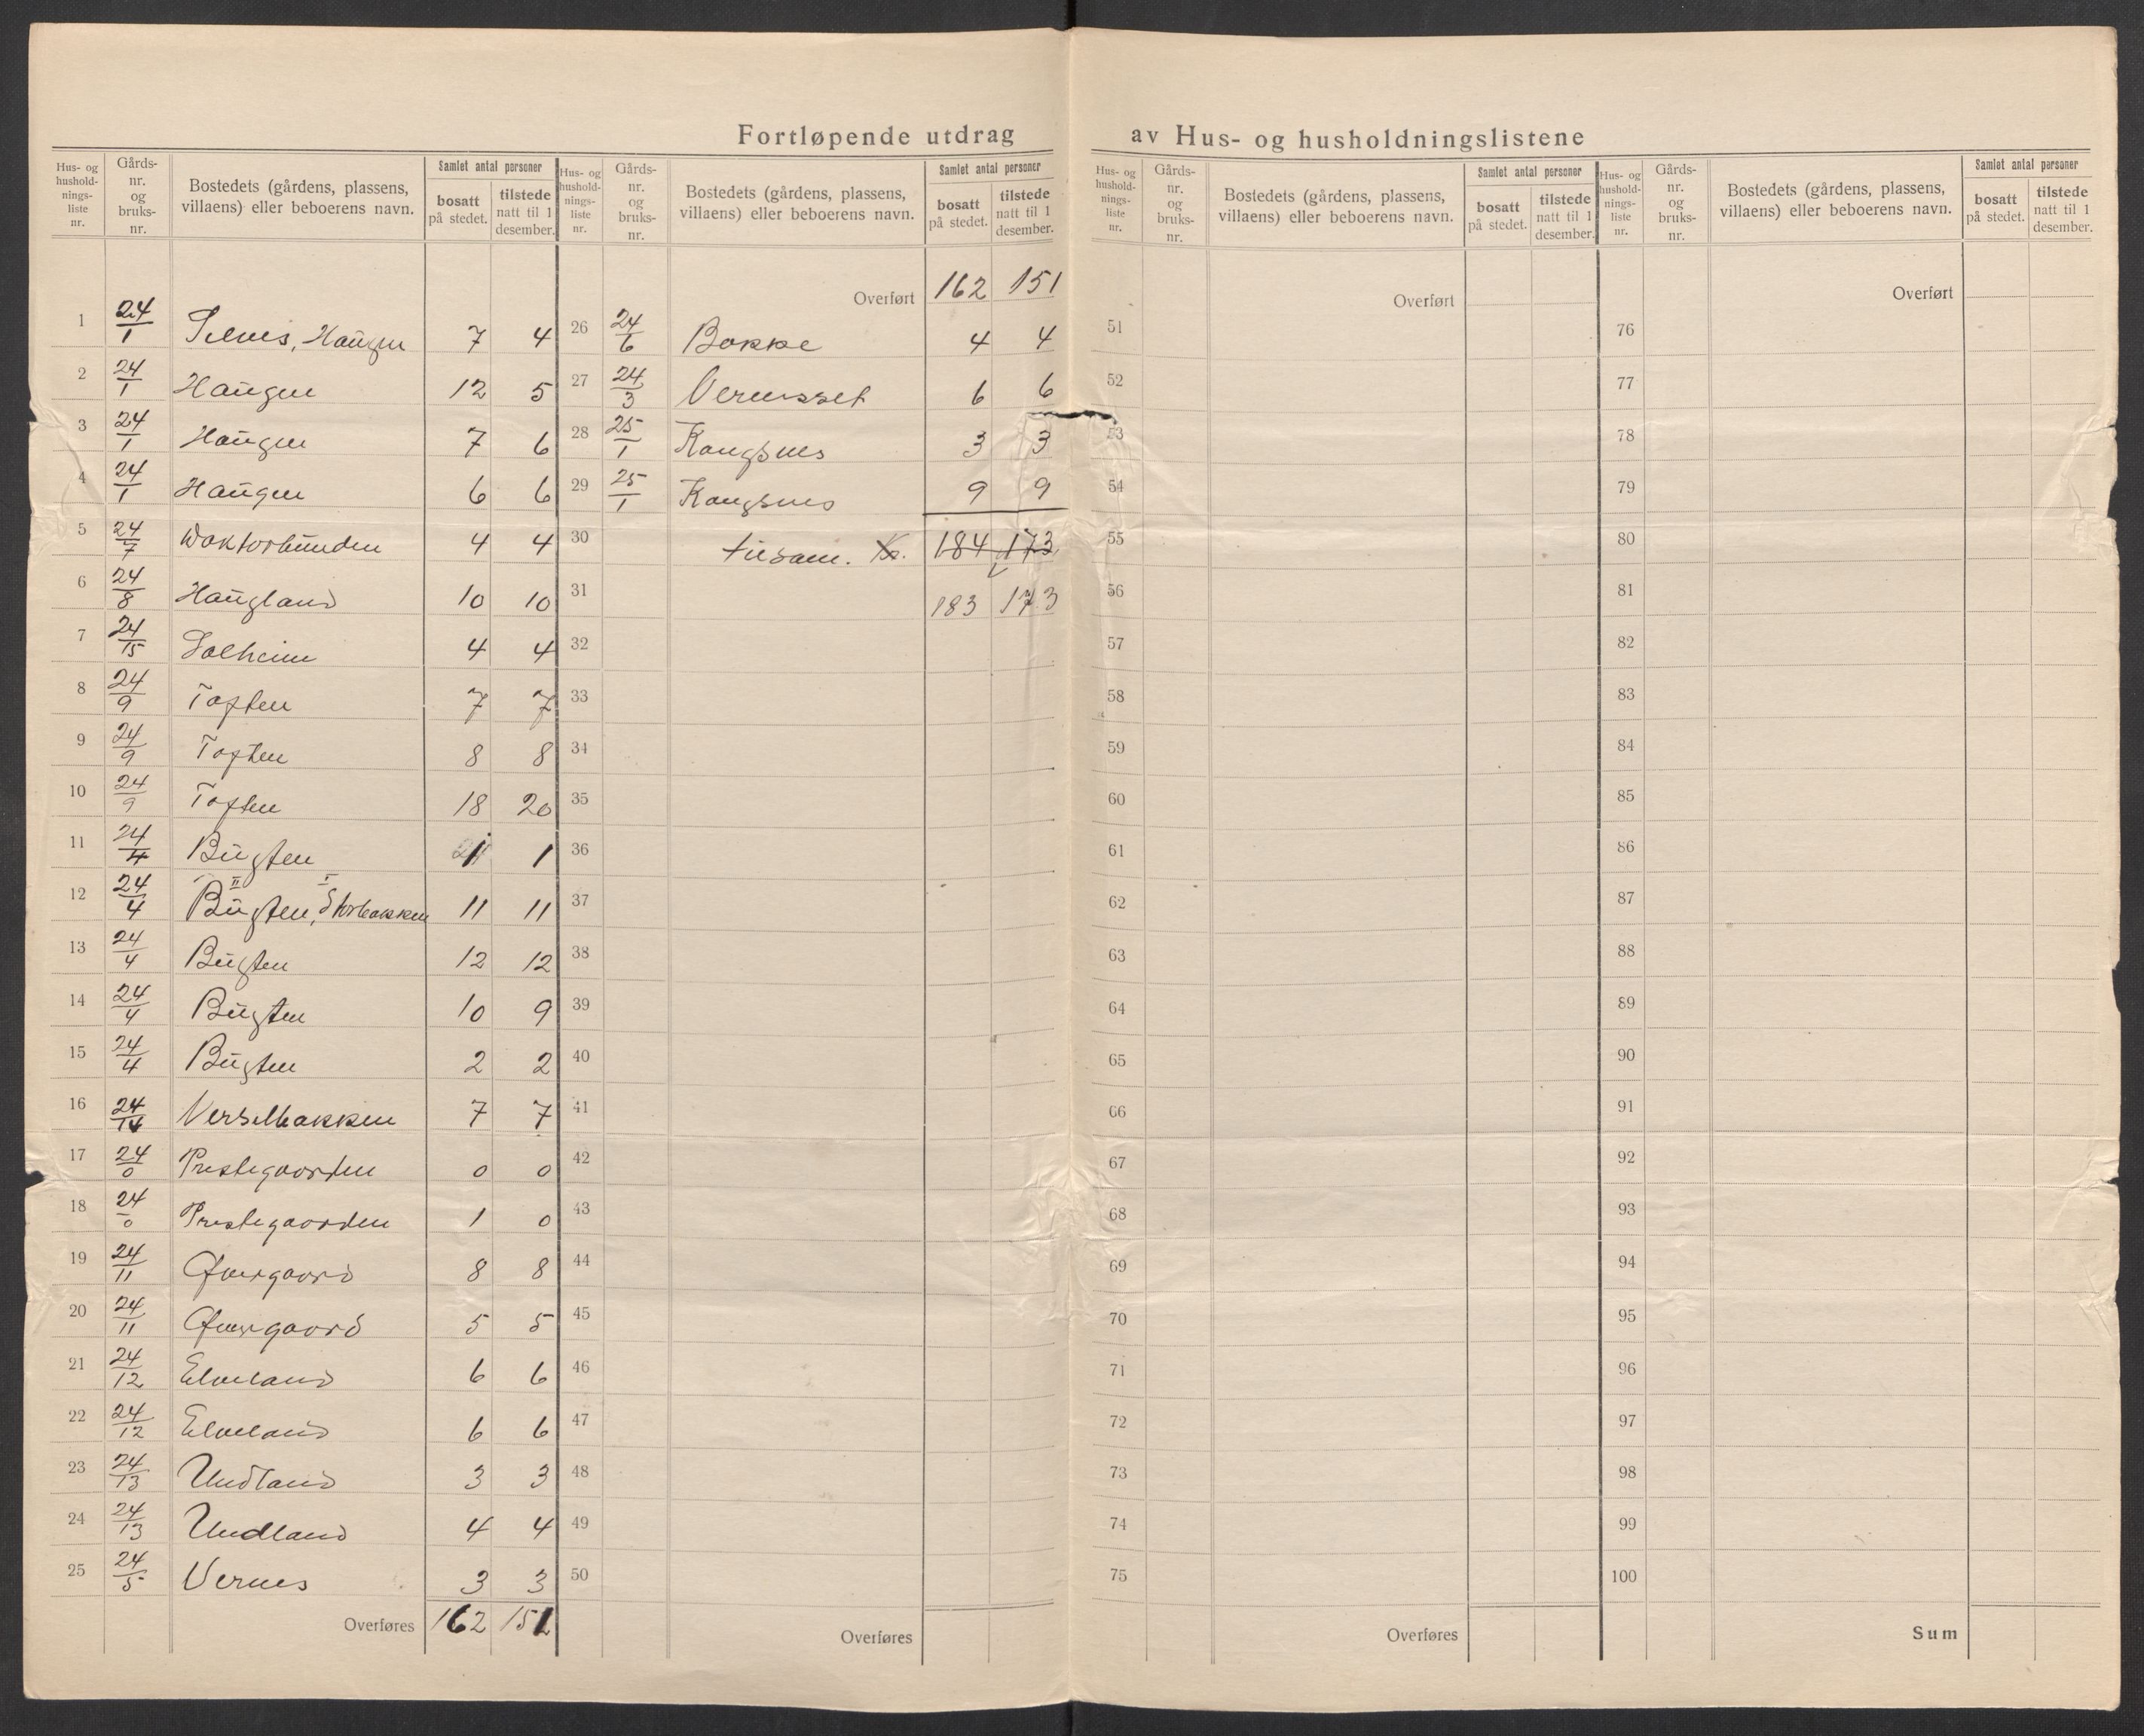 Fortløpende utdrag av Hus- og husholdningslistene
Hus- og hushold-nings-liste nr. | Gårds-nr. og bruks-nr. | Bostedets (gårdens, plassens, villaens) eller beboerens navn. | Samlet antal personer | bosatt på stedet. | tilstede natt til 1 desember.
1 24/1 Selnes, Haugen 7 4
2 24/1 Haugen 12 5
3 24/1 Haugen 7 6
4 24/1 Haugen 6 6
5 24/7 Doktorbunden 4 4
6 24/8 Haugland 10 10
7 24/15 Solheim 4 4
8 24/9 Toften 7 7
9 24/9 Toften 8 8
10 24/9 Toften 18 20
11 24/4 Bugten 1 1
12 24/4 Bugten, Storbakken 11 11
13 24/4 Bugten 12 12
14 24/4 Bugten 10 9
15 24/4 Bugten 2 2
16 24/14 7 7
17 24/0 Prestegaarden 0 0
18 24/0 Prestegaarden 1 0
19 24/11 Øvergaard 8 8
20 24/11 Øvergaard 5 5
21 24/12 Elveland 6 6
22 24/12 Elveland 6 6
23 24/13 Undland 3 3
24 24/13 Undland 4 4
25 24/5 Vernes 3 3
Overføres 162 151
Hus- og hushold-nings-liste nr. | Gårds-nr. og bruks-nr. | Bostedets (gårdens, plassens, villaens) eller beboerens navn. | Samlet antal personer | bosatt på stedet. | tilstede natt til 1 desember.
Overført 162 151
26 24/6 Bakke 4 4
27 24/3 6 6
28 25/1 Kongsnes 3 3
29 25/1 Kongsnes 9 9
30 tilsam. 184 173
31 183 173
32
33
34
35
36
37
38
39
40
41
42
43
44
45
46
47
48
49
50
Overføres
Hus- og hushold-nings-liste nr. | Gårds-nr. og bruks-nr. | Bostedets (gårdens, plassens, villaens) eller beboerens navn. | Samlet antal personer | bosatt på stedet. | tilstede natt til 1 desember.
Overført
51
52
53
54
55
56
57
58
59
60
61
62
63
64
65
66
67
68
69
70
71
72
73
74
75
Overføres
Hus- og hushold-nings-liste nr. | Gårds-nr. og bruks-nr. | Bostedets (gårdens, plassens, villaens) eller beboerens navn. | Samlet antal personer | bosatt på stedet. | tilstede natt til 1 desember.
Overført
76
77
78
79
80
81
82
83
84
85
86
87
88
89
90
91
92
93
94
95
96
97
98
99
100
Sum